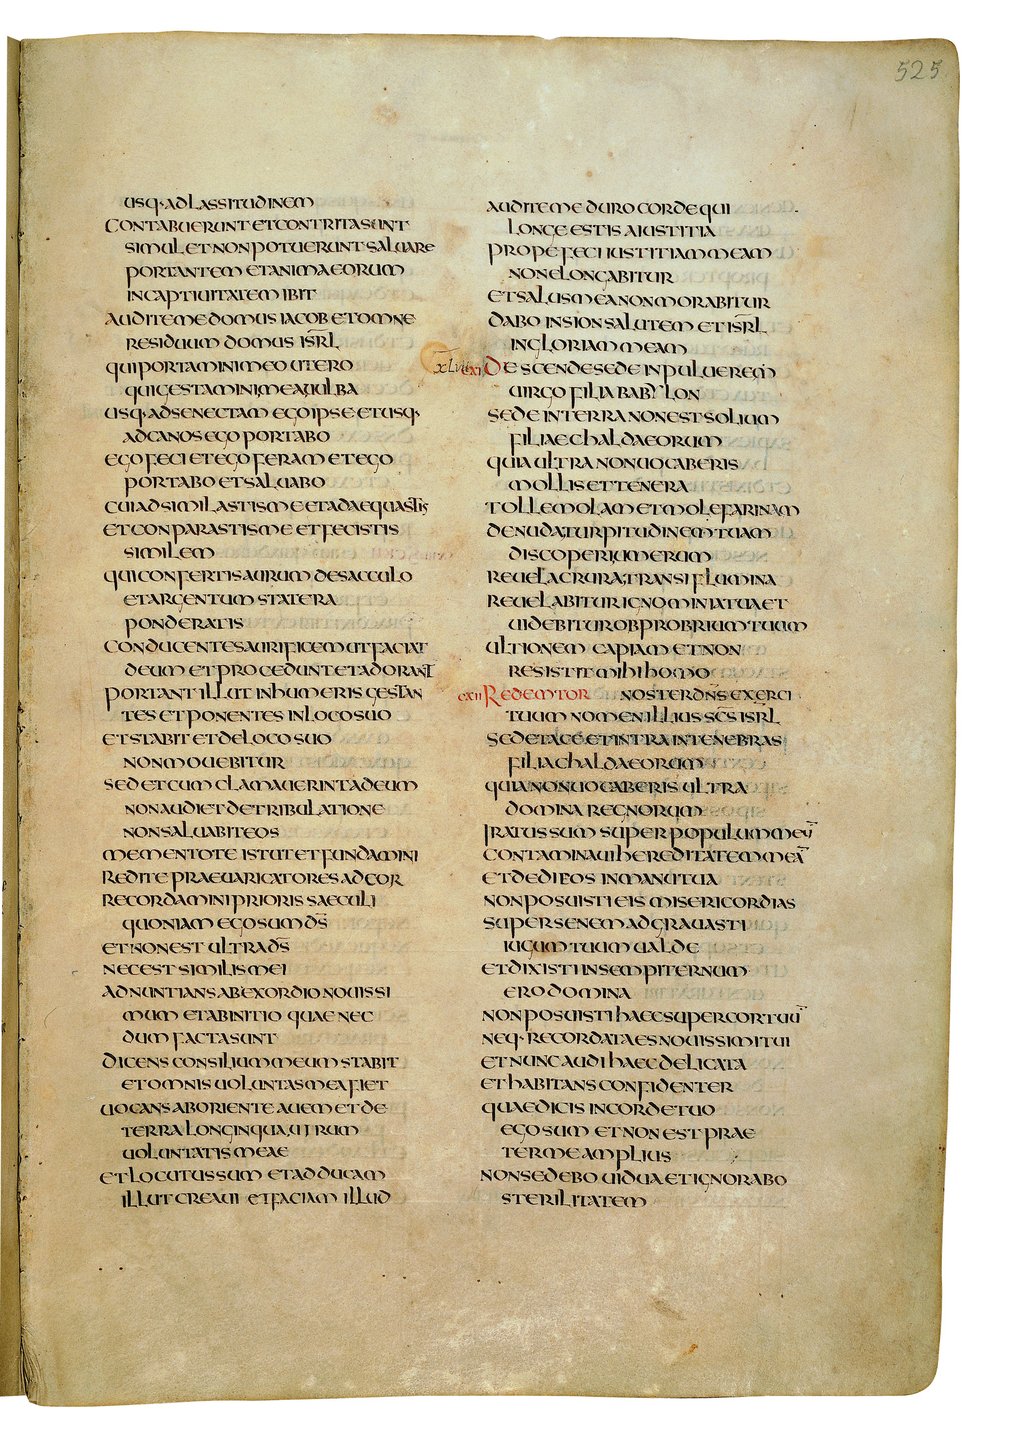 525
usq· ad lassitudinem
contabuerunt et contritasunt
simul et non potuerunt saluare
portantem et anima eorum
in captiuitatem ibit
audite me domus iacob et omne
residuum domus isr̄l
qui portamini meo utero
qui gestamini, mea, uulba
usq· ad senectam ego ipse et usq·
ad canos ego portabo
ego feci et ego feram et ego
portabo et saluabo
cui adsimilastis me et adaequastis
et conparastis me et fecistis
similem
qui confertis aurum de sacculo
et argentum statera
ponderatis
conducentes aurificem ut faciat
deum et procedunt et adorant
portant illut in humeris gestan
tes et ponentes in loco suo
et stabit et de loco suo
non mouebitur
sed et cum clamauerint ad eum
non audiet de tribulatione
non saluabit eos
mementote istut et fundamini
redite praeuaricatores ad cor
recordamini prioris saeculi
quoniam ego sum d̄s
et non est ultra d̄s
nec est similis mei
adnuntians ab exordio nouissi
mum et ab initio quae nec
dum facta sunt
dicens consilium meum stabit
et omnis uoluntas mea fiet
uocans ab oriente auem et de
terra longinqua, uirum
uoluntatis meae
et locutus sum et adducam
illut creaui et faciam illud
audite me duro corde qui
longe estis a iustitia
prope feci iustitiam meam
non elongabitur
et salus mea non morabitur
dabo in sion salutem et isr̄l
in gloriam meam
xlvii cxi Descende sede in puluerem
uirgo filia babylon
sede in terra non est solium
filiae chaldaeorum
quia ultra non uocaberis
mollis et tenera
tolle molam et mole farinam
denuda, turpitudinem tuam
discoperi, umerum
reuela crura, transi flumina
reuelabitur ignominia tua et
uidebitur obprobrium tuum
ultionem capiam et non
resistit mihi homo
cxii Redemtor noster dn̄s exerci
tuum nomen illius sc̄s isr̄l
sede tace et intra in tenebras
filia chaldaeorum
quia non uocaberis ultra
domina regnorum
iratus sum super populum meū
contaminaui hereditatem meā
et dedi eos in manu tua
non posuisti eis misericordias
super senem adgrauasti
iugum tuum ualde
et dixisti in sempiternum
ero domina
non posuisti haec super cor tuū
neq· recordata es nouissimi tui
et nunc audi haec delicata
et habitans confidenter
quae dicis in corde tuo
ego sum et non est prae
ter me amplius
non sedebo uidua et ignorabo
sterilitatem